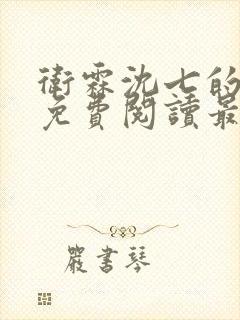 衛霖沈七的
免費閱讀最
嚴書琴